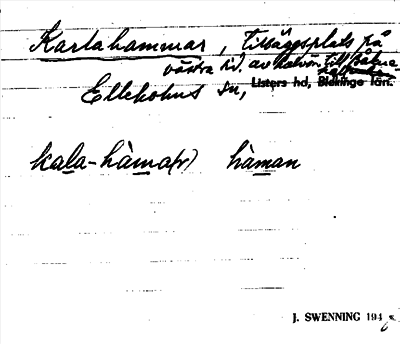 Karlahammar, tilläggsplats på
västra sid. av halvön till Bökna-
Elleholms sn, Listers hd, Blekinge län.
kala-hàma(r) hàman
J. SWENNING 1946